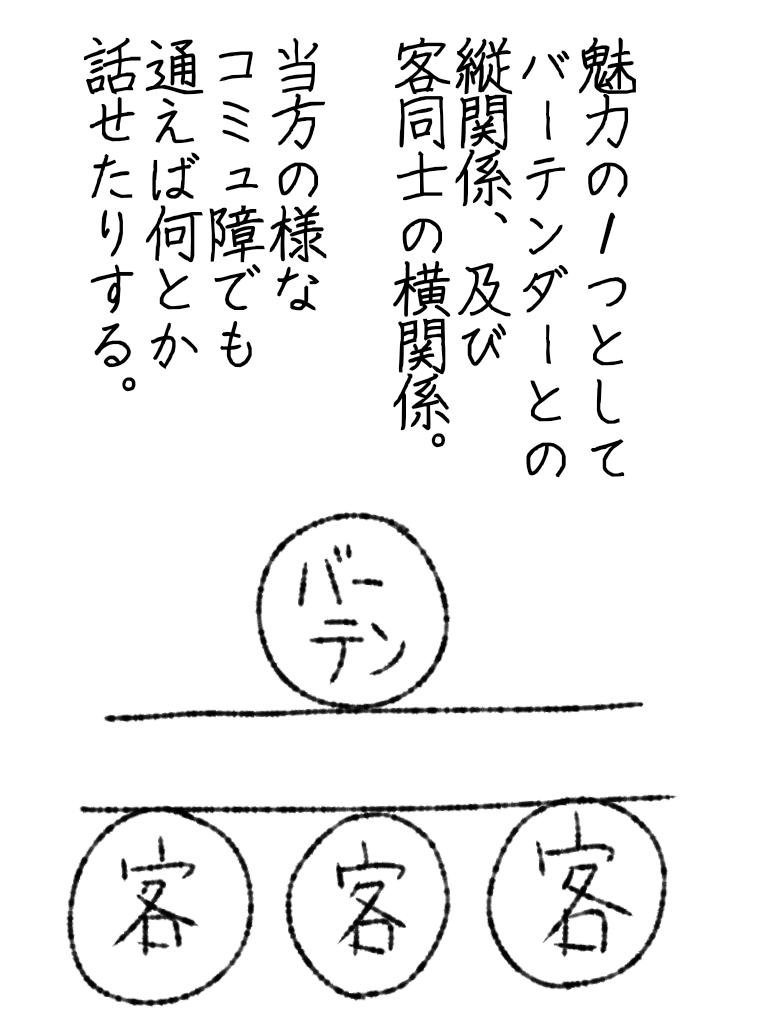 魅力の1つとして
バーテンダーとの
縦関係、及び
客同士の横関係。
当方の様な
コミュ障でも
通えば何とか
話せたりする。
バー
テン
客
客
客